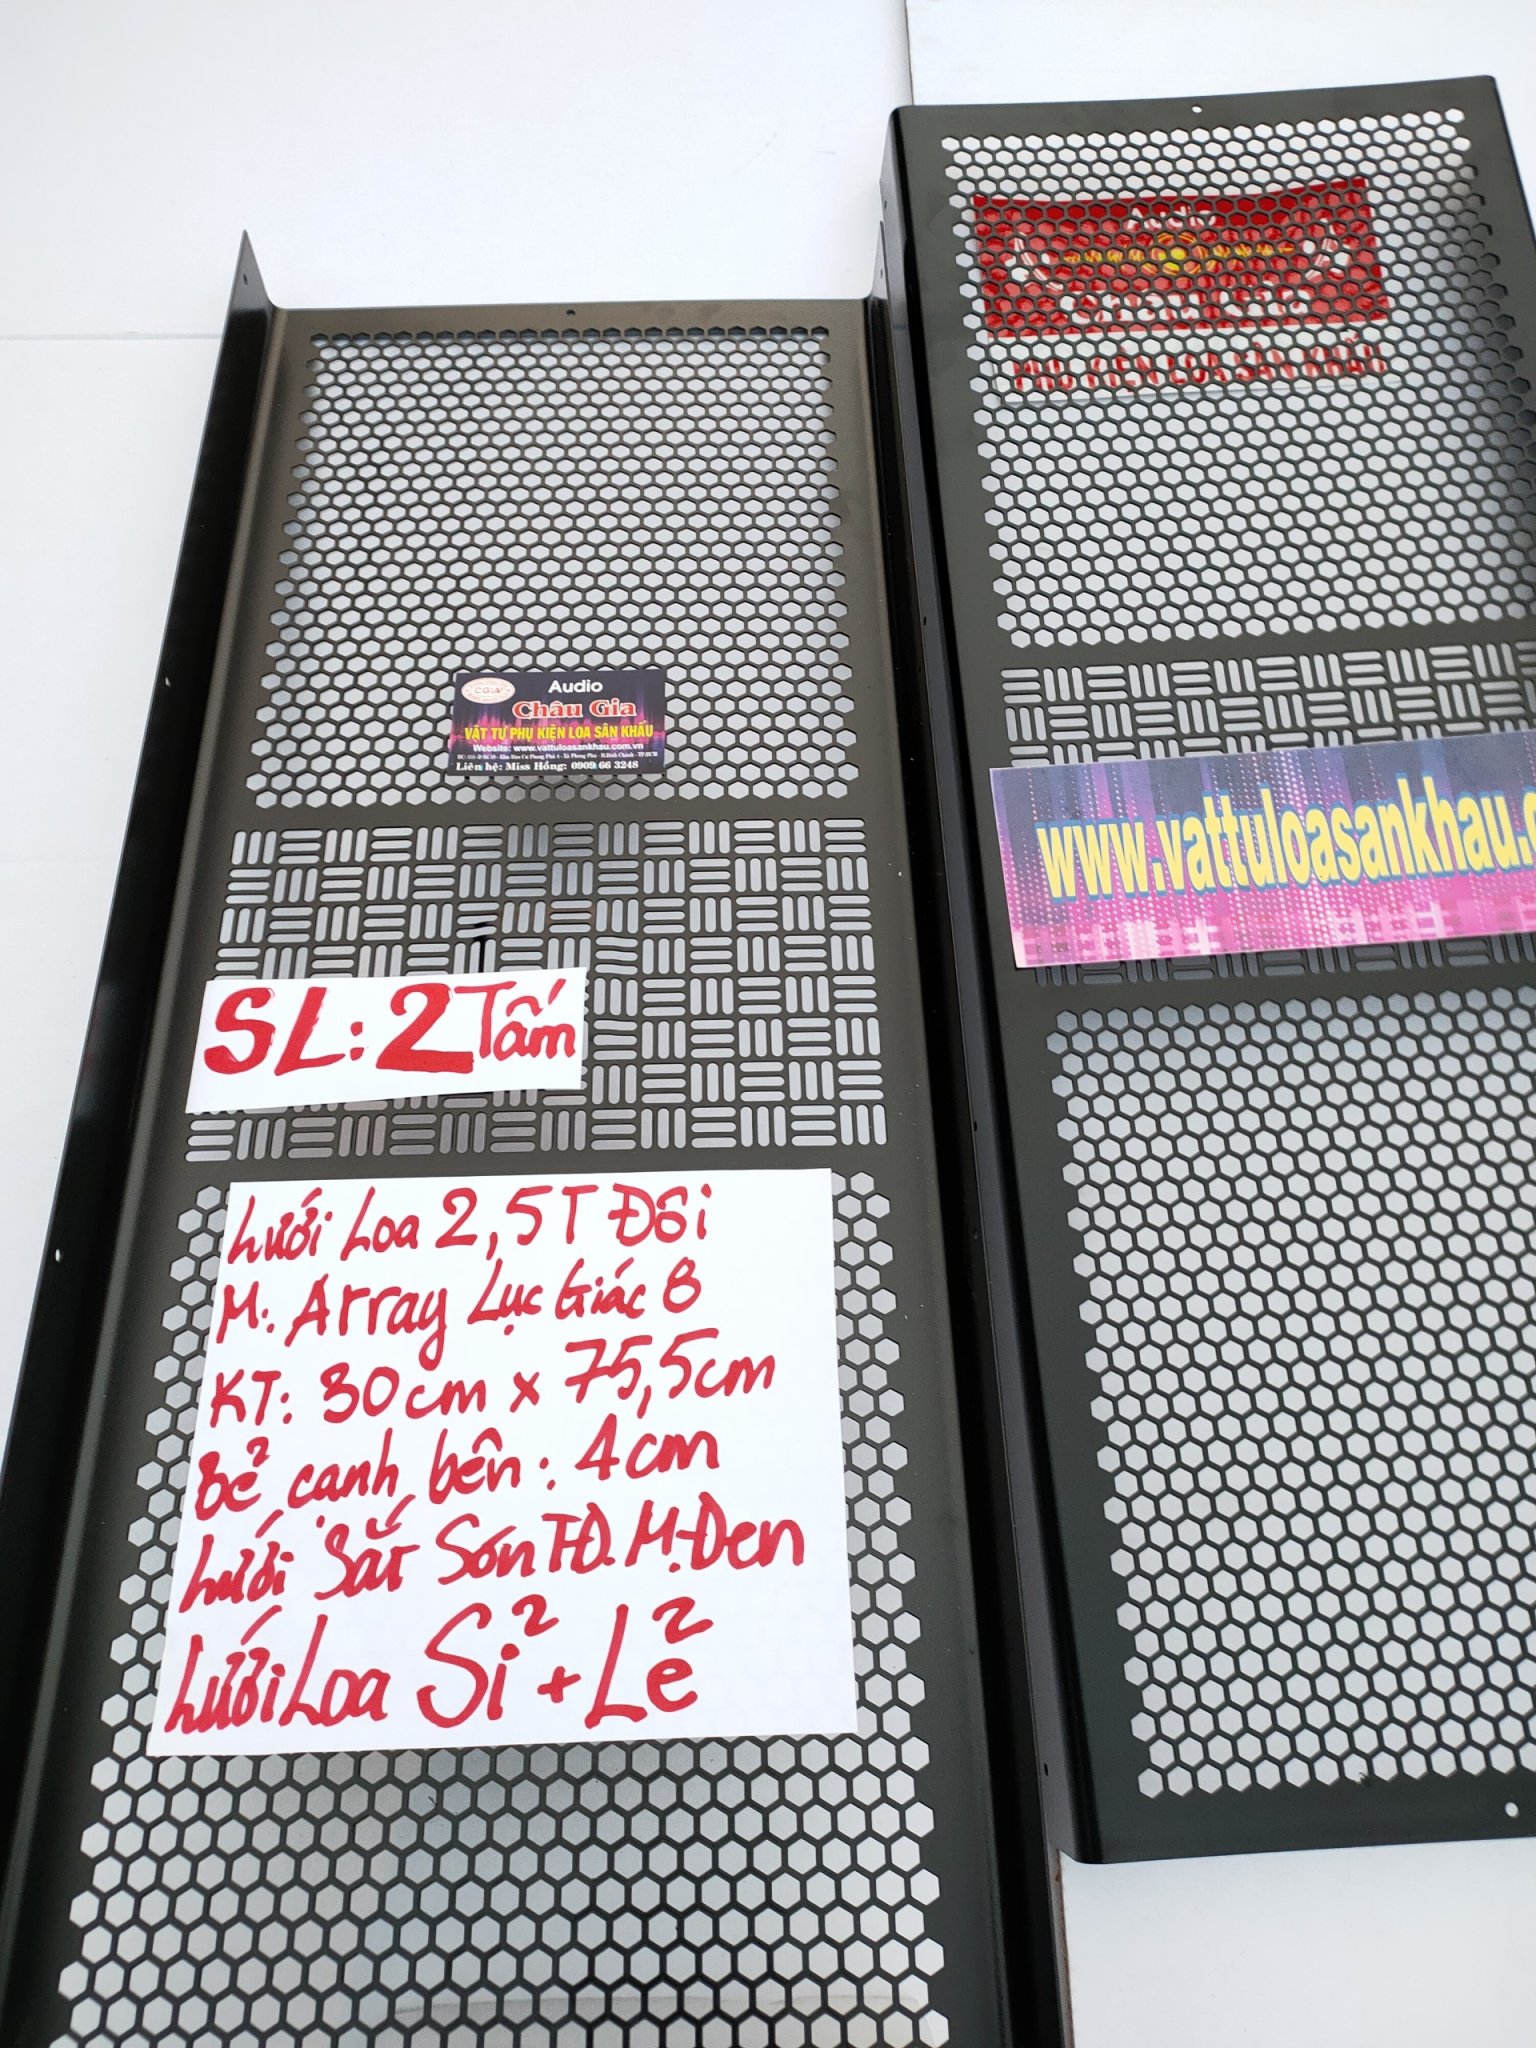 Audio
PHỤ KIỆN LOA SÂN KHẤU
CGIA
Audio
Châu Gia
VẬT TƯ PHỤ KIỆN LOA SÂN KHẤU
Website: www.vattuloasankhau.com.vn
Liên hệ: Miss Hồng: 0909 66 3248
www.vattuloasankhau.c
SL: 2 Tấm
Lưới Loa 2,5T Đôi
M. Array Lục Giác 8
KT: 30cm x 75,5cm
Bẻ cạnh bên: 4cm
Lưới Sắt Sơn T.Đ. M.Đen
Lưới Loa Sỉ + Lẻ